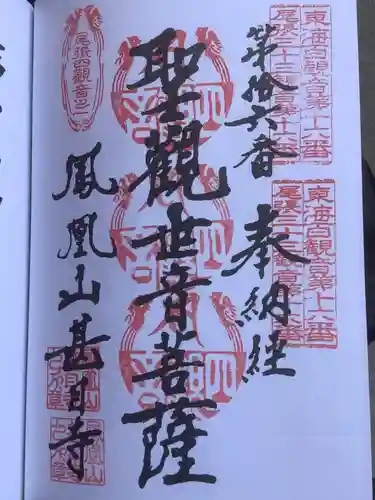 東海百観音第十六番
尾張三十三観音第十六番
東海百観音第十六番
尾張三十三観音第十六番
第拾六番
奉納経
聖観世音菩薩
尾張四観音之一
鳳凰山甚目寺